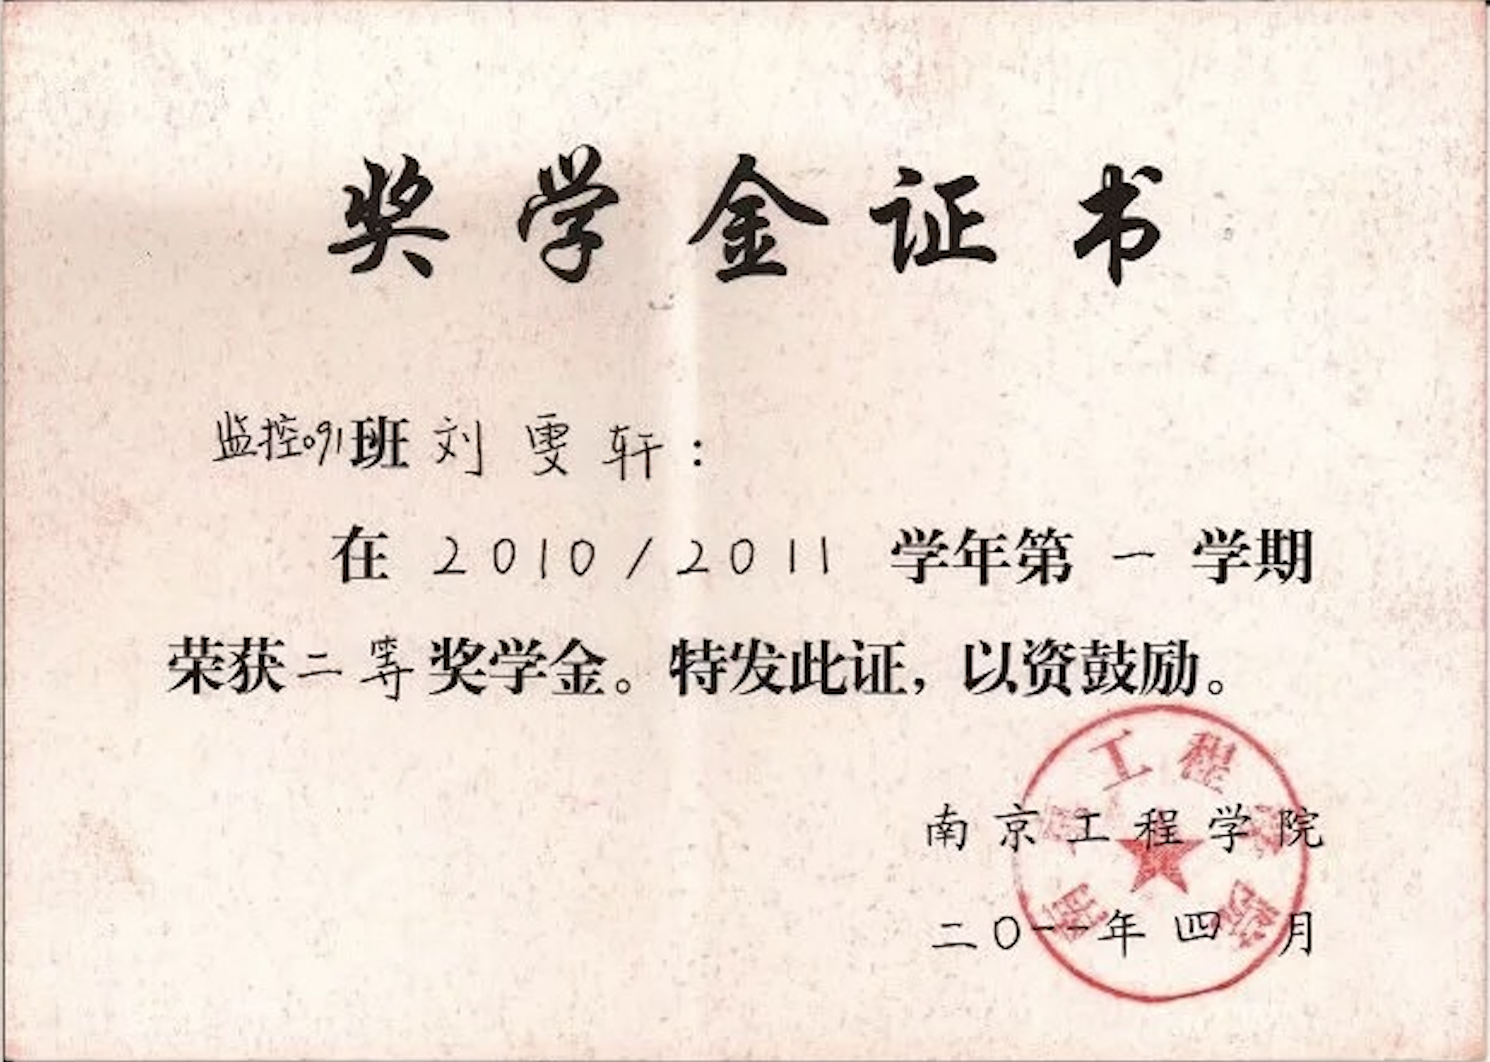 奖学金证书
监控091班刘雯轩:
在 2010/2011 学年第 一 学期
荣获二等奖学金。特发此证,以资鼓励。
南京工程学院
二〇一一年四月
南京工程学院